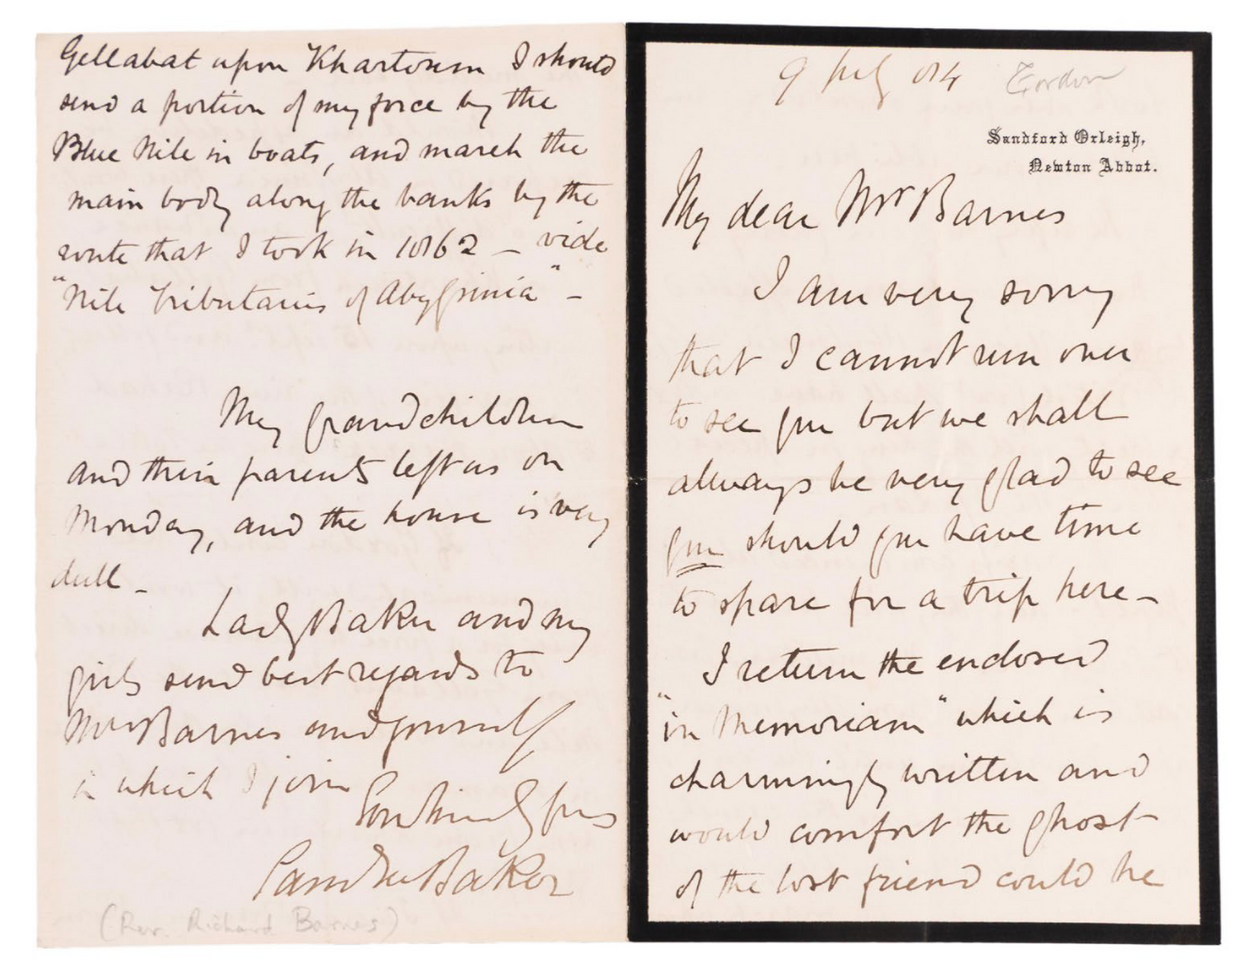 Gellabat upon Khartoum I should
send a portion of my force by the
Blue Nile in boats, and march the
main body along the banks by the
route that I took in 1862 — vide
"Nile Tributaries of Abyssinia" —
My grandchildren
and their parents left us on
Monday, and the house is very
dull —
Lady Baker and my
girls send best regards to
Mrs Barnes and yourself
in which I join
Yours
Sam W Baker
(Rev. Richard Barnes)
9 July 84 Gordon
Sandford Orleigh,
Newton Abbot.
My dear Mr Barnes
I am very sorry
that I cannot run over
to see you but we shall
always be very glad to see
you should you have time
to spare for a trip here —
I return the enclosed
"in Memoriam" which is
charmingly written and
would comfort the ghost
of the lost friend could he